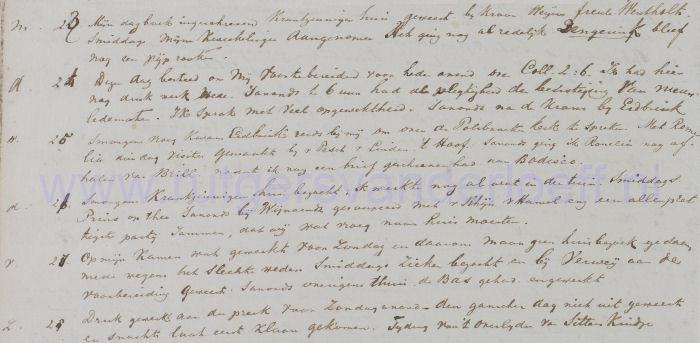 M. 23 Mijn dagboek ingeschreven Krankzinnigen huis geweest bij Kraan Weijers freule
Smiddags mijne Aangenomen Het ging nog al redelijk Dengerink bleef
nog een pijp rooken.
D 24 Dezen dag besteed om Mij voortebereiden voor heden avond over Coll. 2:6. Ik had hier
nog druk werk mede. Savonds te 6 uur had de plegtigheid der bevestiging van nieuwe
ledematen. Ik sprak met veel opgewektheid. Savonds na de Kraan bij Eedbrink
W. 25 Smorgens vroeg kwam Eedbrink reeds bij mij om over de kerk te spreken. Met
dien dag visiten Gemaakt bij v Pesch v Linden 't Hoof. Savonds ging ik Cornelia nog af
halen van Brill, nadat ik nog een brief geschreven had aan
www.rutgersvanderloeff.nl
d. 26 Smorgens Krankzinnigen huis bezocht. Ik werkte nog al wat in den tuin. Smiddags
Prins op thee Savonds bij Wijnaendts gesoupeerd met v Rhijn v Hamel enz een allerplat
tigste partij Jammer, dat wij wat vroeg naar huis moesten.
V 27 Op mijn Kamer wat gewerkt voor Zondag en daarom maar geen huisbezoek gedaan
mede wegens het slechte weder. Smiddags Zieken bezocht en bij Verweij aan de
voorbereiding Geweest. Savonds overigens thuis. de Bas gehad. en gewerkt
Z. 28 Druk gewerkt aan de preek voor Zondagavond. den ganschen dag niet uit geweest
en snachts laat eerst klaar gekomen. Tijding van 't overlijden van Sitters Kindje